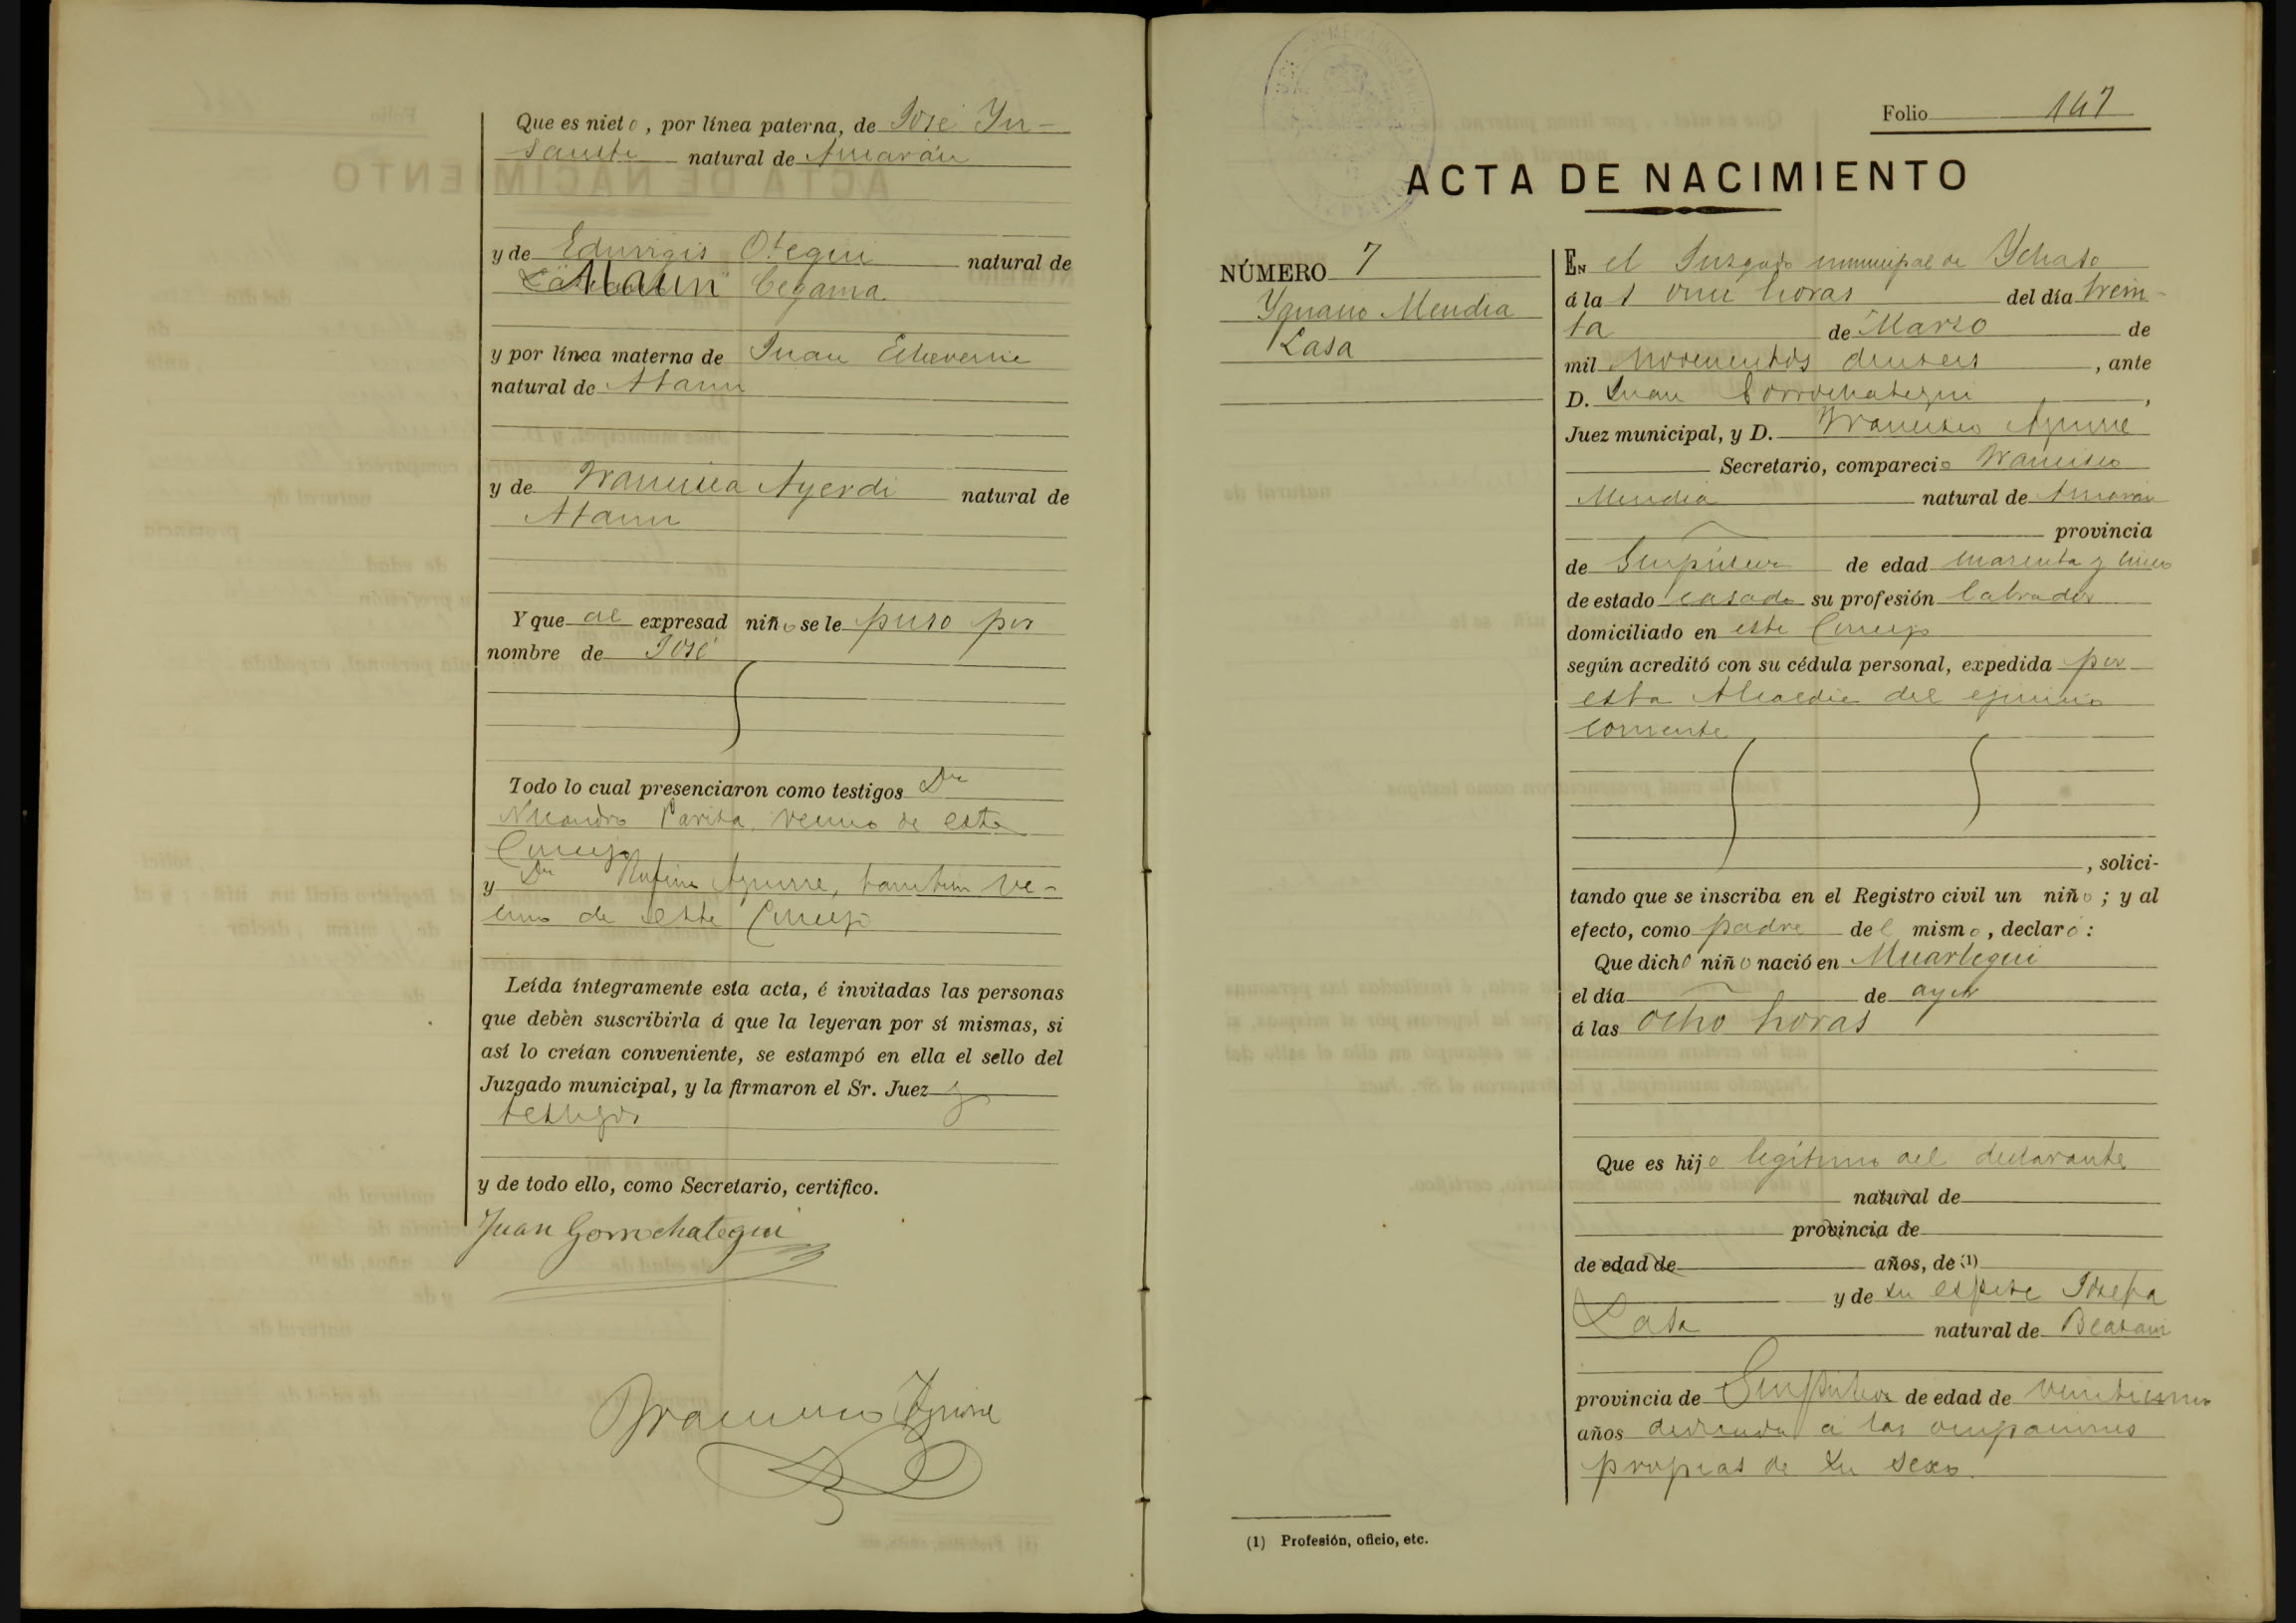 Que es nieto, por línea paterna, de José In-
sausti natural de Amarán
y de Eduvigis Otegui natural de
Ataun Cegama
y por línea materna de Juan Echeverría
natural de Ataun
y de Francisca Ayerdi natural de
Ataun
Y que al expresad niño se le puso por
nombre de José
Todo lo cual presenciaron como testigos Dn
Nicandro vecino de este
Concejo
y Dn Rufino Aguirre, tambien ve-
cino de este Concejo
Leída íntegramente esta acta, é invitadas las personas
que debèn suscribirla á que la leyeran por sí mismas, si
así lo creían conveniente, se estampó en ella el sello del
Juzgado municipal, y la firmaron el Sr. Juez y
testigos
y de todo ello, como Secretario, certifico.
Juan Gorrochategui
Francisco Aguirre
Folio 147
ACTA DE NACIMIENTO
NÚMERO 7
Ygnacio Mendia
Lasa
EN el Juzgado municipal de Ychaso
á las once horas del día trein-
ta de Marzo de
mil novecientos dieciseis, ante
D. Juan Gorrochategui,
Juez municipal, y D. Francisco Aguirre
Secretario, compareció Francisco
Mendia natural de Amarán
provincia
de Guipúzcoa de edad cuarenta y cinco
de estado casado su profesión labrador
domiciliado en este Concejo
según acreditó con su cédula personal, expedida por
esta Alcaldia del ejercicio
corriente
, solici-
tando que se inscriba en el Registro civil un niño; y al
efecto, como padre del mismo, declaró:
Que dicho niño nació en Muartegui
el día de ayer
á las ocho horas
Que es hijo legítimo del declarante
natural de
provincia de
de edad de años, de (1)
y de su esposa Josefa
Lasa natural de Beasain
provincia de Guipúzcoa de edad de
años dedicada á las ocupaciones
propias de su sexo.
(1) Profesión, oficio, etc.